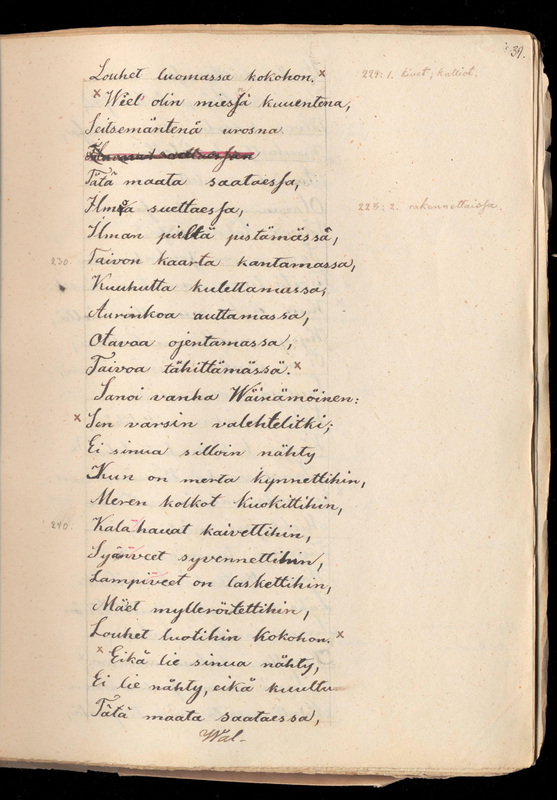 39.
Louhet luomassa kokohon.× 224: 1. kivet; kalliot.
× Wiel' olin miessä kuuentena,
Seitsemäntenä urosna
Tätä maata saataessa,
Ilmoa suettaessa, 228: 2. rakennettaissa.
Ilman pieltä pistämässä,
230. Taivon kaarta kantamassa,
Kuuhutta kulettamassa,
Aurinkoa auttamassa,
Otavaa ojentamassa,
Taivoa tähittämässä.×
Sanoi vanha Wäinämöinen:
× Sen varsin valehtelitki;
Ei sinua silloin nähty
Kun on merta kynnettihin,
Meren kolkot kuokittihin,
240. Kala hauat kaivettihin,
Syänveet syvennettihin,
Lampiveet on laskettihin,
Mäet mylleröitettihin,
Louhet luotihin kokohon.×
× Eikä lie sinua nähty,
Ei lie nähty, eikä kuultu
Tätä maata saataessa,
Wal-